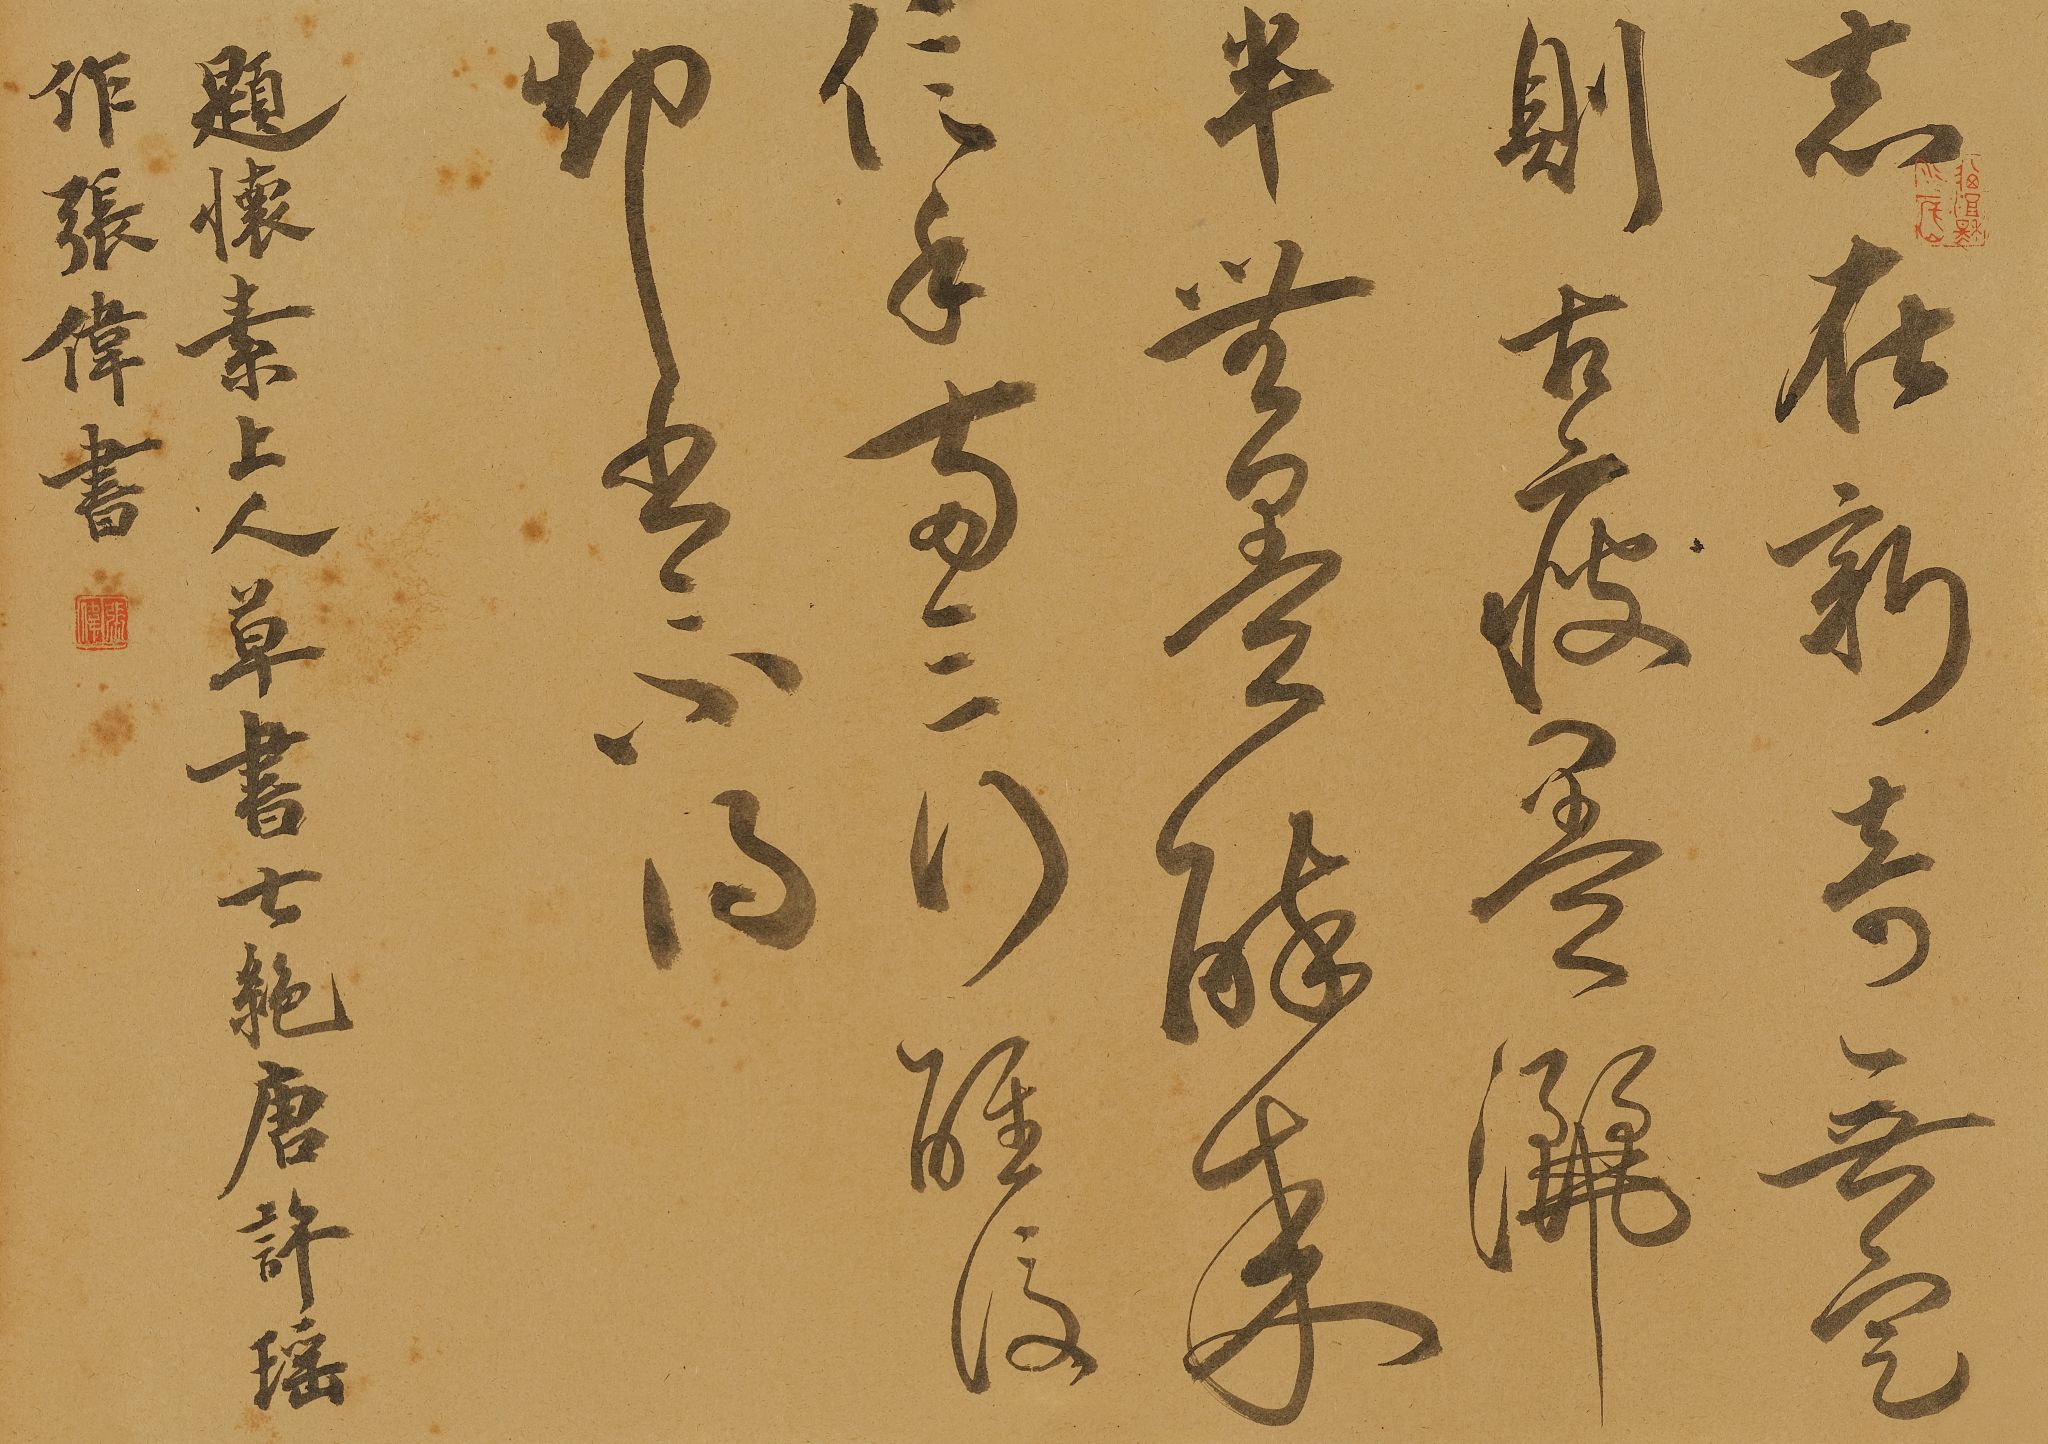 志在新奇無定
則古瘦墨灑
半無墨醉來
信手兩三行醒後
却書〻不得
題懷素上人草書七絶唐許瑶
作張偉書
張偉